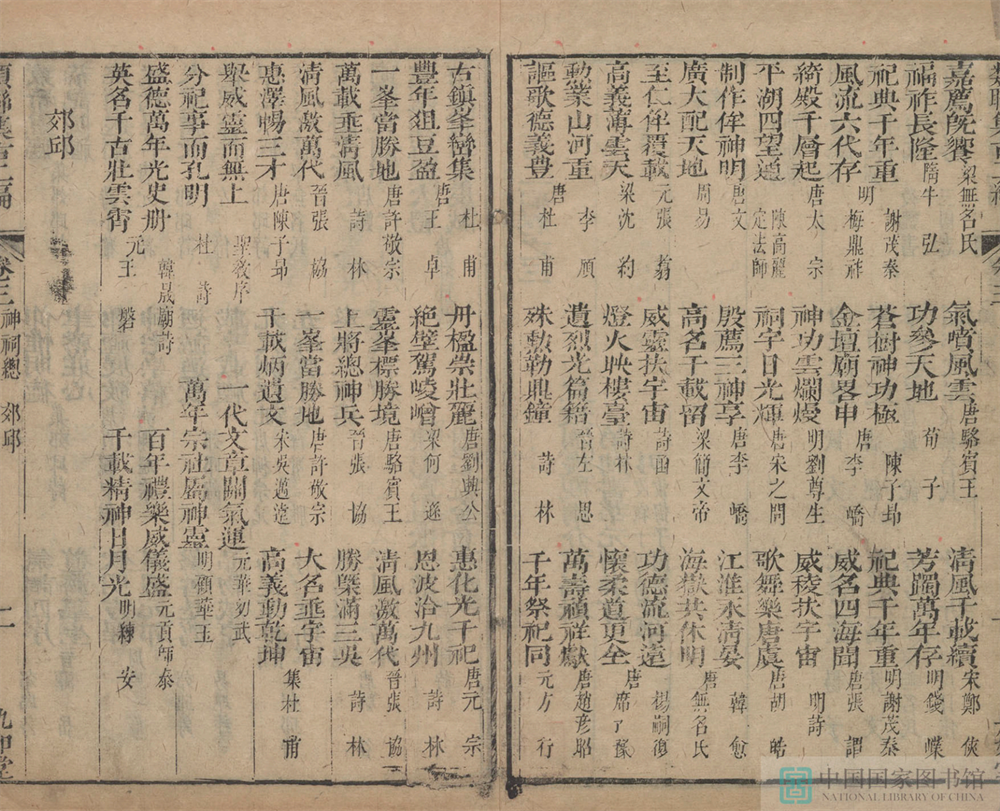 嘉薦既饗 梁無名氏 氣噴風雲 唐駱賓王 清風千載續 宋鄭俠
福祚長隆 隋牛弘 功參天地 荀子 芳躅萬年存 明錢
祀典千年重 明謝茂秦 蒼樹神功極 陳子昻 祀典千年重 明謝茂秦
風流六代存 梅鼎祚 金壇廟畧申 唐李嶠 威名四海聞 唐張謂
綺殿千層起 唐太宗 神功雲爛熳 明劉尊生 威稜扶宇宙 明詩
平湖四望通 陳高麗定法師 祠宇日光輝 唐宋之問 歌舞樂唐虞 唐胡皓
制作侔神明 唐文 殷薦三神享 唐李嶠 江淮水清晏 韓愈
廣大配天地 周易 高名千載留 梁簡文帝 海嶽共休明 唐無名氏
至仁侔覆載 元張翥 威靈扶宇宙 詩函 功德流河遠 楊嗣復
高義薄雲天 梁沈約 燈火映樓臺 詩林 懷柔道更全 唐席豫
勳業山河重 李頎 遺烈光篇籍 晉左思 萬壽禎祥獻 唐趙彥昭
謳歌德義豊 唐杜甫 殊勳勒鼎鐘 詩林 千年祭祀同 元方行
古鎮峯巒集 杜甫 丹楹崇壯麗 唐劉興公 惠化光千祀 唐元宗
豐年狙豆盈 唐王卓 絕壁駕崚嶒 梁何遜 恩波洽九州 詩林
一峯當勝地 唐許敬宗 靈峯標勝境 唐駱賓王 清風激萬代 晉張協
萬載乖清風 詩林 上將總神兵 晉張協 勝槩滿三吳 詩林
清風激萬代 晉張協 一峯當勝地 唐許敬宗 大名垂宇宙
惠澤暢三才 唐陳子昻 千載炳遺文 宋吳邁遠 高義動乾坤 集杜甫
聚威靈而無上 聖教序 一代文章關氣運 元華幼武
分祀事而孔明 杜詩 萬年宗社屬神靈 明顧華玉
盛德萬年光史册 韓晟廟詩 百年禮樂威儀盛 元貢師泰
英名千古壯雲霄 元王磐 千載精神日月光 明練安
郊邱
卷三 神祠總 郊邱 二
中国国家图书馆
NATIONAL LIBRARY OF CHINA